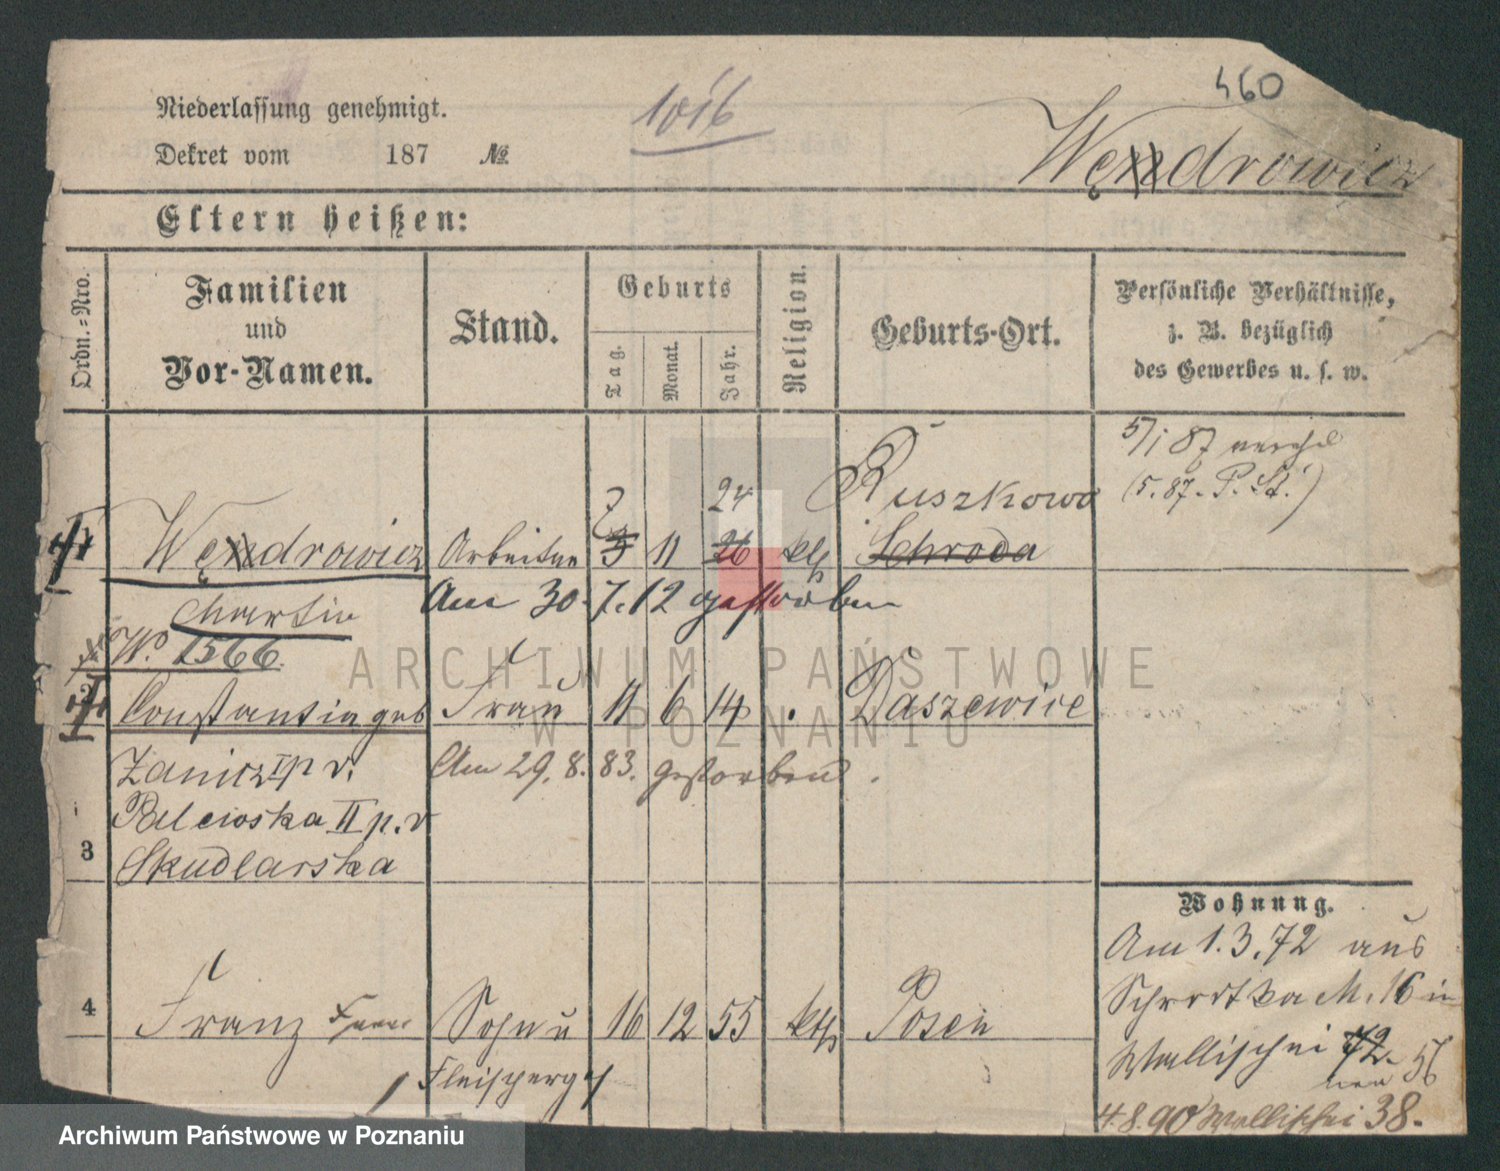 Niederlassung genehmigt.
1016
460
Dekret vom 187 №
Wędrowicz
Eltern heißen:
Ordn.=Nro.
Familien
und
Vor-Namen.
Stand.
Geburts
Tag.
Monat.
Jahr.
Religion.
Geburts-Ort.
Persönliche Verhältnisse,
z. B. bezüglich
des Gewerbes u. s. w.
5/1 87
(5.87. P. St.)
7 24 Ruszkowo
Wędrowicz Arbeiter 3 11 26 kth Schroda
Martin Am 30.7.12 gestorben
W. 1566.
2 Constantia geb Frau 11 6 14 Daszewice
I p v. Am 29.8.83. gestorben.
II p. v
3 Skudlarska
Wohnung.
Am 1.3.72 aus
Schrodka M. 16 in
4 Franz Sohn u 16 12 55 kth Posen
Wallischei 72. 56
Fleischerg
4.8.90 Wallischei 38.
ARCHIWUM PAŃSTWOWE
W POZNANIU
Archiwum Państwowe w Poznaniu